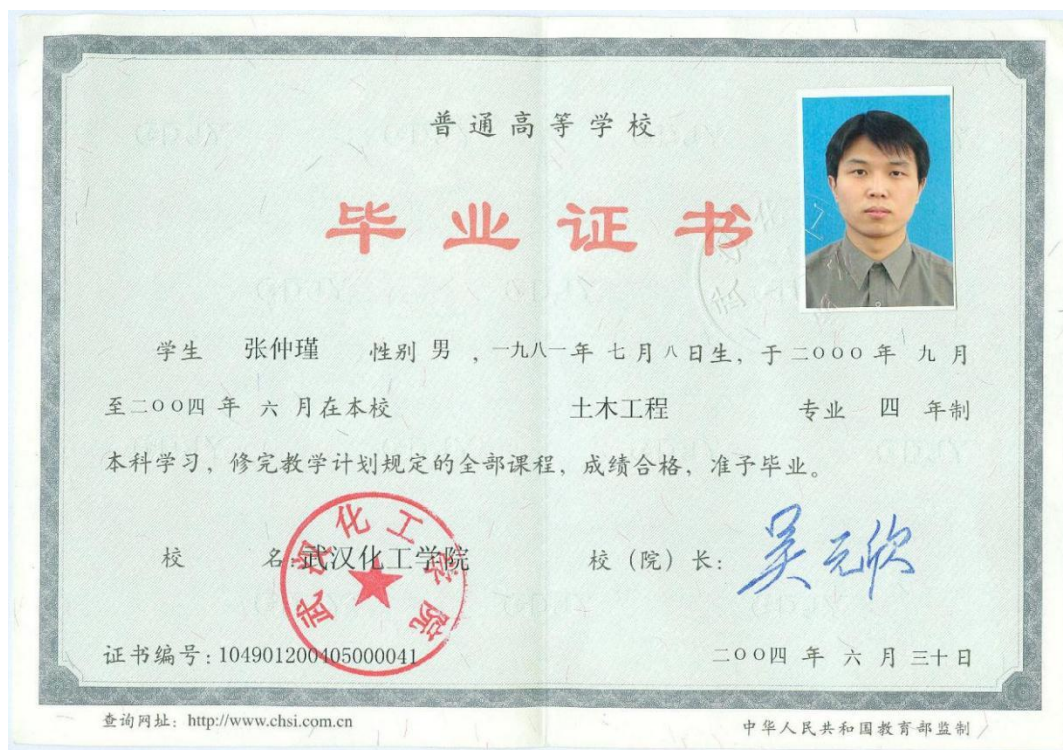 普通高等学校
毕业证书
学生 张仲瑾 性别 男 ，一九八一年 七 月 八 日生，于 二○○○ 年 九 月
至二○○四 年 六 月在本校 土木工程 专业 四 年制
本科学习，修完教学计划规定的全部课程，成绩合格，准予毕业。
校 名：武汉化工学院 校（院）长：吴元欣
武汉化工学院
证书编号：104901200405000041 二○○四 年 六 月 三十 日
查询网址：http://www.chsi.com.cn 中华人民共和国教育部监制